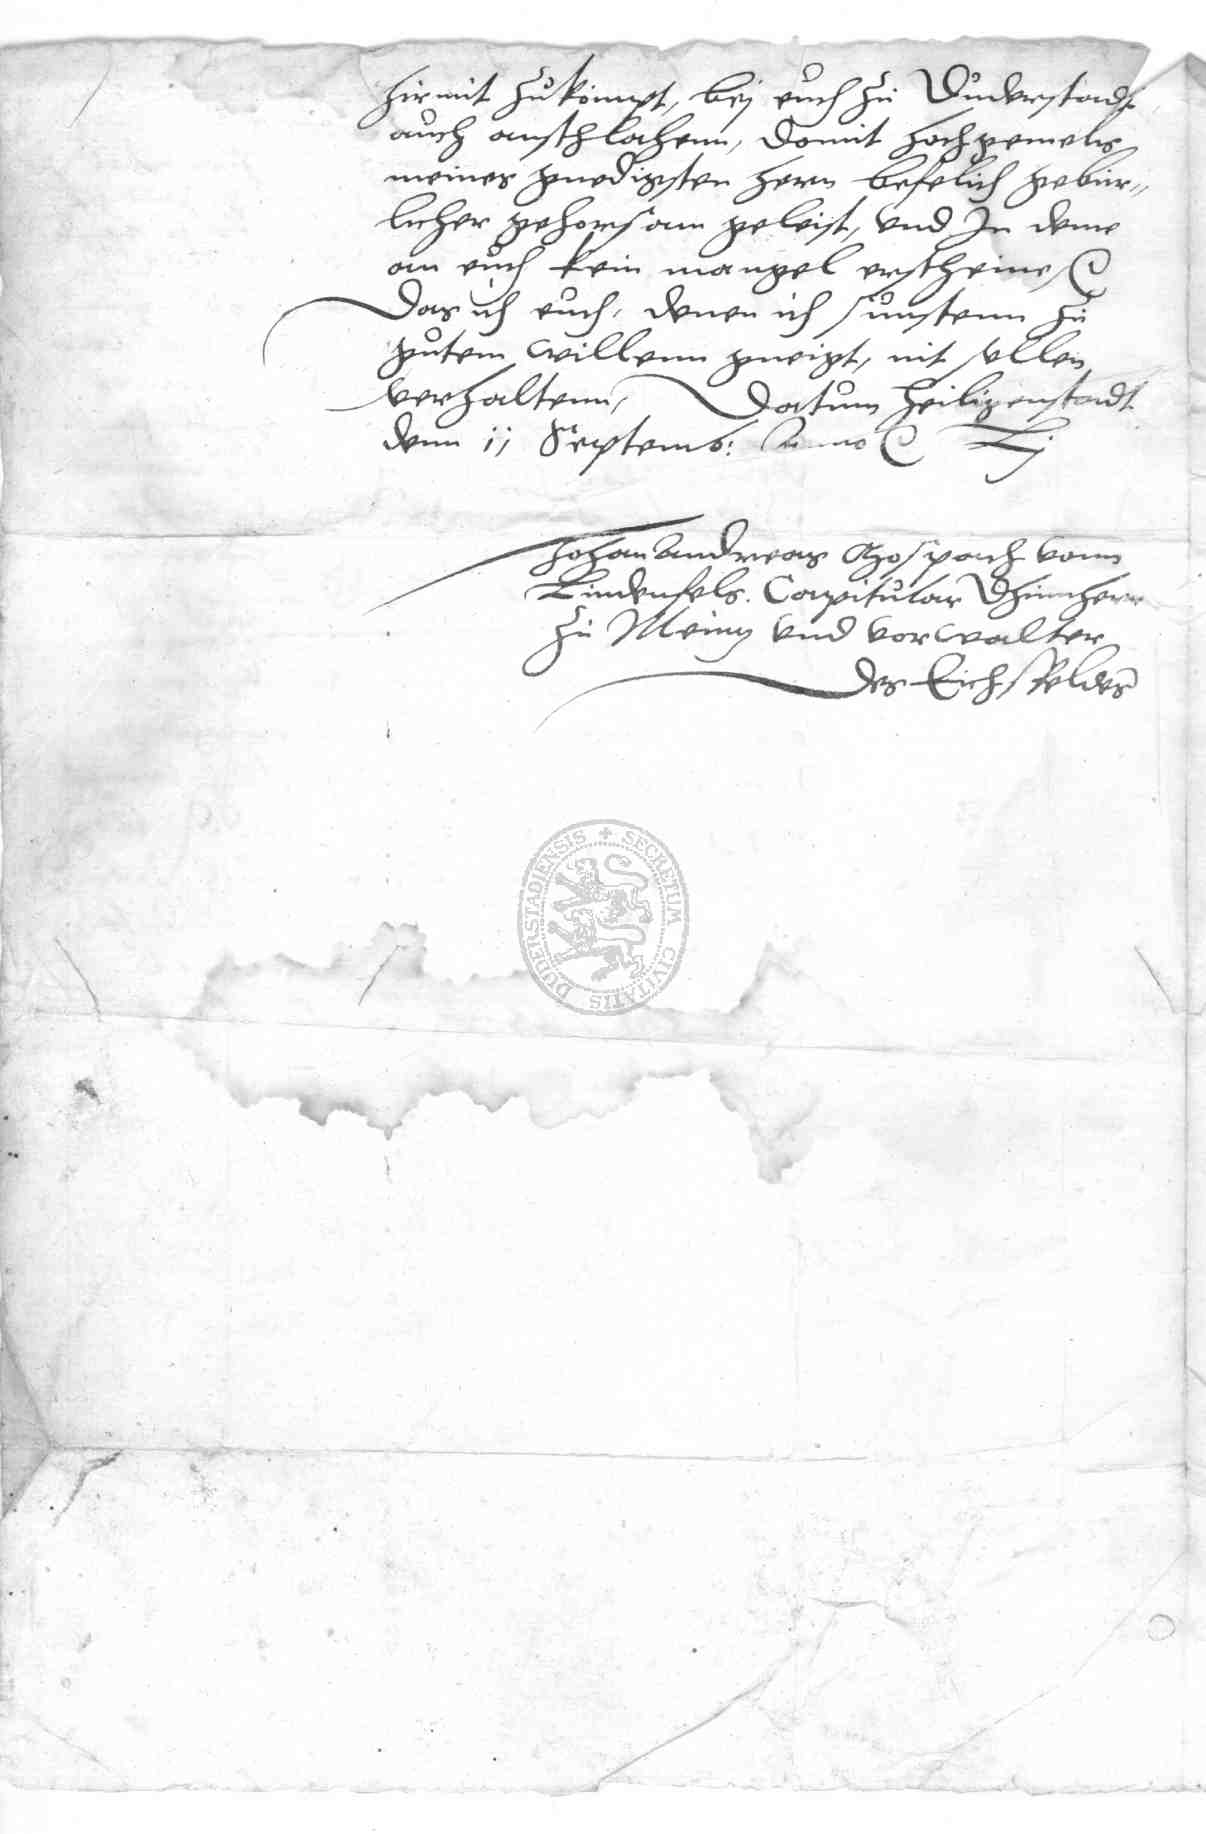 hirmit zukömpt, bej euch zu Duderstadt
auch anschlahenn, domit hochgemelts
meines gnedigsten hern befelich gebür„
licher gehorsam geleist, vnd In deme
an euch kein mangel erscheine,
Das ich euch, denen ich sunstenn zu
gutem willenn gneigt, nit sollen
verhaltenn, Datum Heiligenstadt
denn 11 Septemb: Anno Lj
Johan Andreas Mospach vonn
Lindenfels. Capitular Dhumherr
zu Meintz vnd vorwalter
des Eichsfeldes
SECRETUM CIVITATIS DUDERSTADIENSIS